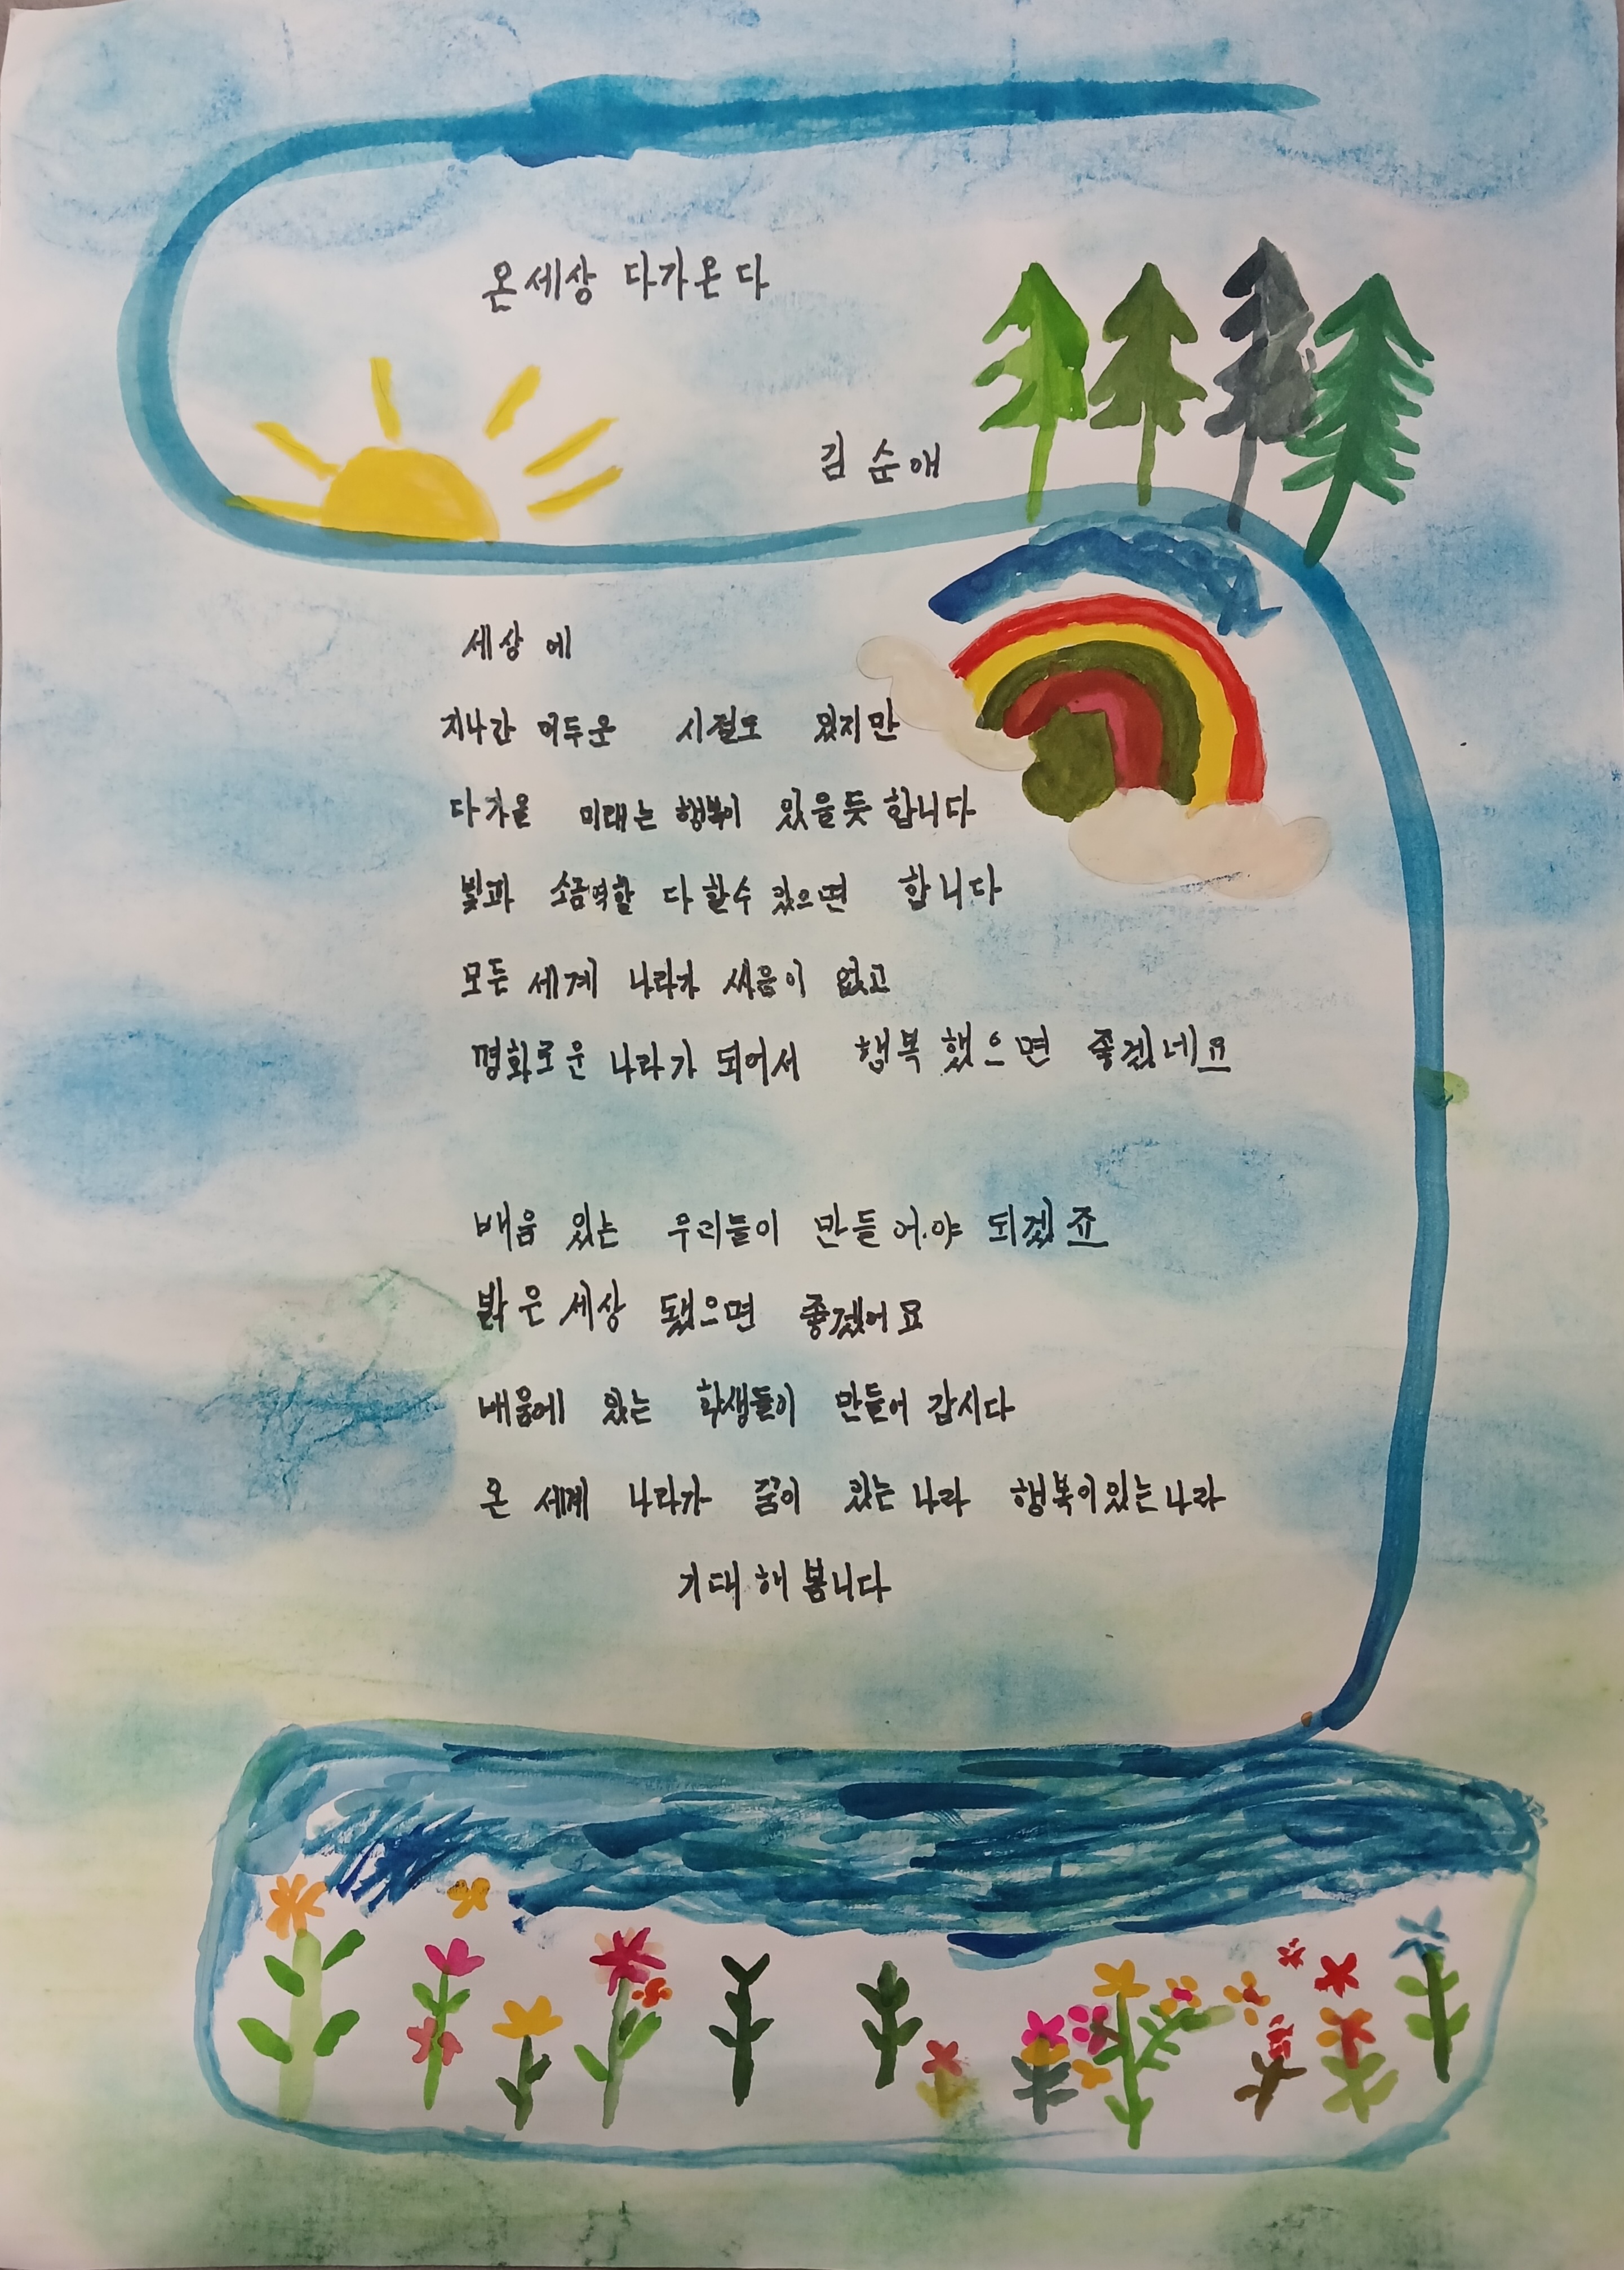 온세상 다가온다
김순애
세상에
지나간 어두운 시절도 있지만
다가올 미래는 행복이 있을듯 합니다
빛과 소금역할 다 할수 있으면 합니다
모든 세계 나라가 싸움이 없고
평화로운 나라가 되어서 행복했으면 좋겠네요
배움 있는 우리들이 만들어야 되겠죠
밝은 세상 됐으면 좋겠어요
배움에 있는 학생들이 만들어 갑시다
온 세계 나라가 꿈이 있는 나라 행복이있는나라
기대해 봅니다